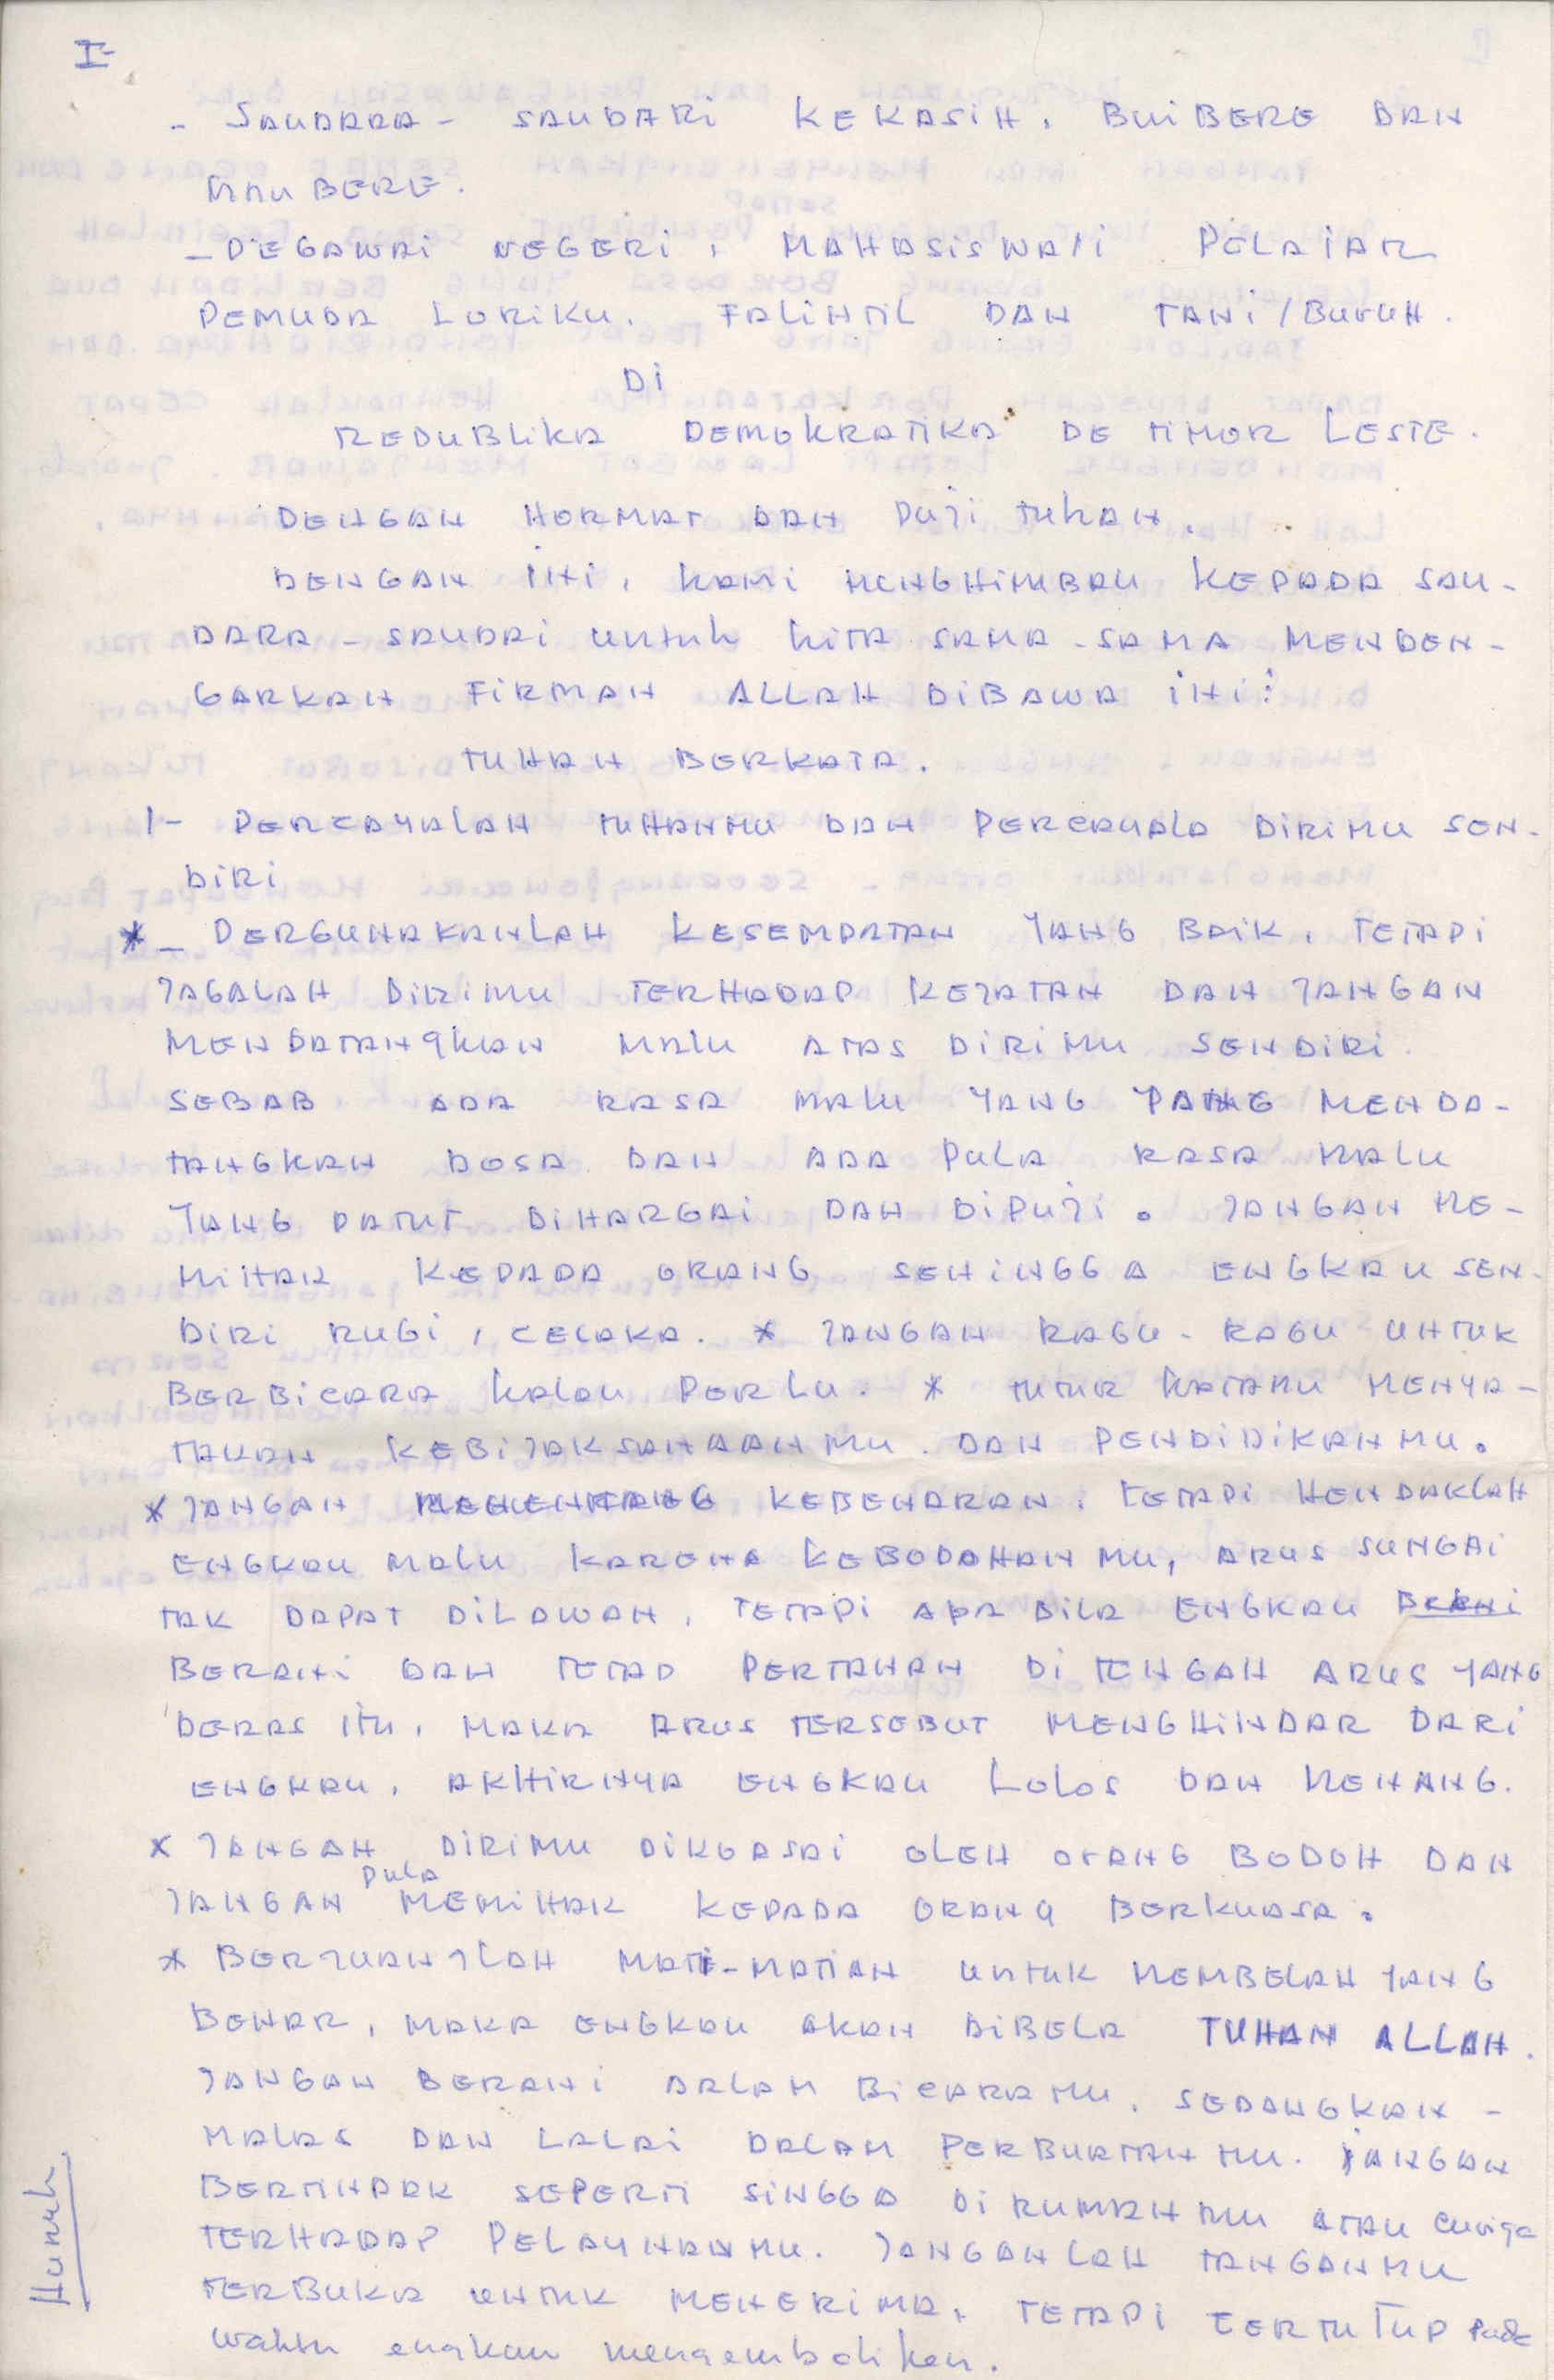 I-
- SAUDARA - SAUDARI KEKASIH, BUIBERE DAN
MAUBERE.
- PEGAWAI NEGERI, MAHASISWA/I PELAJAR
PEMUDA LORIKU, FALINTIL DAN TANI/BURUH.
DI
REPUBLIKA DEMOKRATIKA DE TIMOR LESTE.
DENGAN HORMAT DAN PUJI TUHAN.
DENGAN INI, KAMI MENGHIMBAU KEPADA SAU-
DARA - SAUDARI UNTUK KITA SAMA-SAMA MENDEN-
GARKAN FIRMAN ALLAH DIBAWA INI:
TUHAN BERKATA.
1- PERCAYALAH TUHANMU DAN PERCAYALA DIRIMU SEN-
DIRI
* - PERGUNAKANLAH KESEMPATAN YANG BAIK, TETAPI
JAGALAH DIRIMU TERHADAP KEJATAN DAN JANGAN
MENDATANGKAN MALU ATAS DIRIMU SENDIRI.
SEBAB ADA RASA MALU YANG YANG MENDA-
TANGKAN DOSA DAN ADA PULA RASA MALU
YANG PATUT DIHARGAI DAN DIPUJI. JANGAN ME-
MIHAK KEPADA ORANG SEHINGGA ENGKAU SEN-
DIRI RUGI, CELAKA. * JANGAN RAGU-RAGU UNTUK
BERBICARA KALAU PERLU. * TUTUR KATAMU MENYA-
TAKAN KEBIJAKSANAANMU DAN PENDIDIKANMU.
* JANGAN MENENTANG KEBENARAN, TETAPI HENDAKLAH
ENGKAU MALU KARENA KEBODOHANMU, ARUS SUNGAI
TAK DAPAT DILAWAN, TETAPI APA BILA ENGKAU BERANI
BERANI DAN TETAP PERTAHAN DI TENGAH ARUS YANG
DERAS ITU, MAKA ARUS TERSEBUT MENGHINDAR DARI
ENGKAU, AKHIRNYA ENGKAU LOLOS DAN MENANG.
* JANGAN DIRIMU DIKUASAI OLEH ORANG BODOH DAN
JANGAN PULA MEMIHAK KEPADA ORANG BERKUASA.
* BERJUANJLAH MATI-MATIAN UNTUK MEMBELAH YANG
BENAR, MAKA ENGKAU AKAN DIBELA TUHAN ALLAH.
JANGAN BERANI DALAM BICARAMU, SEDANGKAN -
MALAS DAN LALAI DALAM PERBUATANMU. JANGAN
BERTINDAK SEPERTI SINGGA DI RUMAHMU ATAU curiga
TERHADAP PELAYHANMU. JANGANLAH TANGANMU
TERBUKA UNTUK MENERIMA, TETAPI TERTUTUP Pada
waktu engkau mengembalikan.